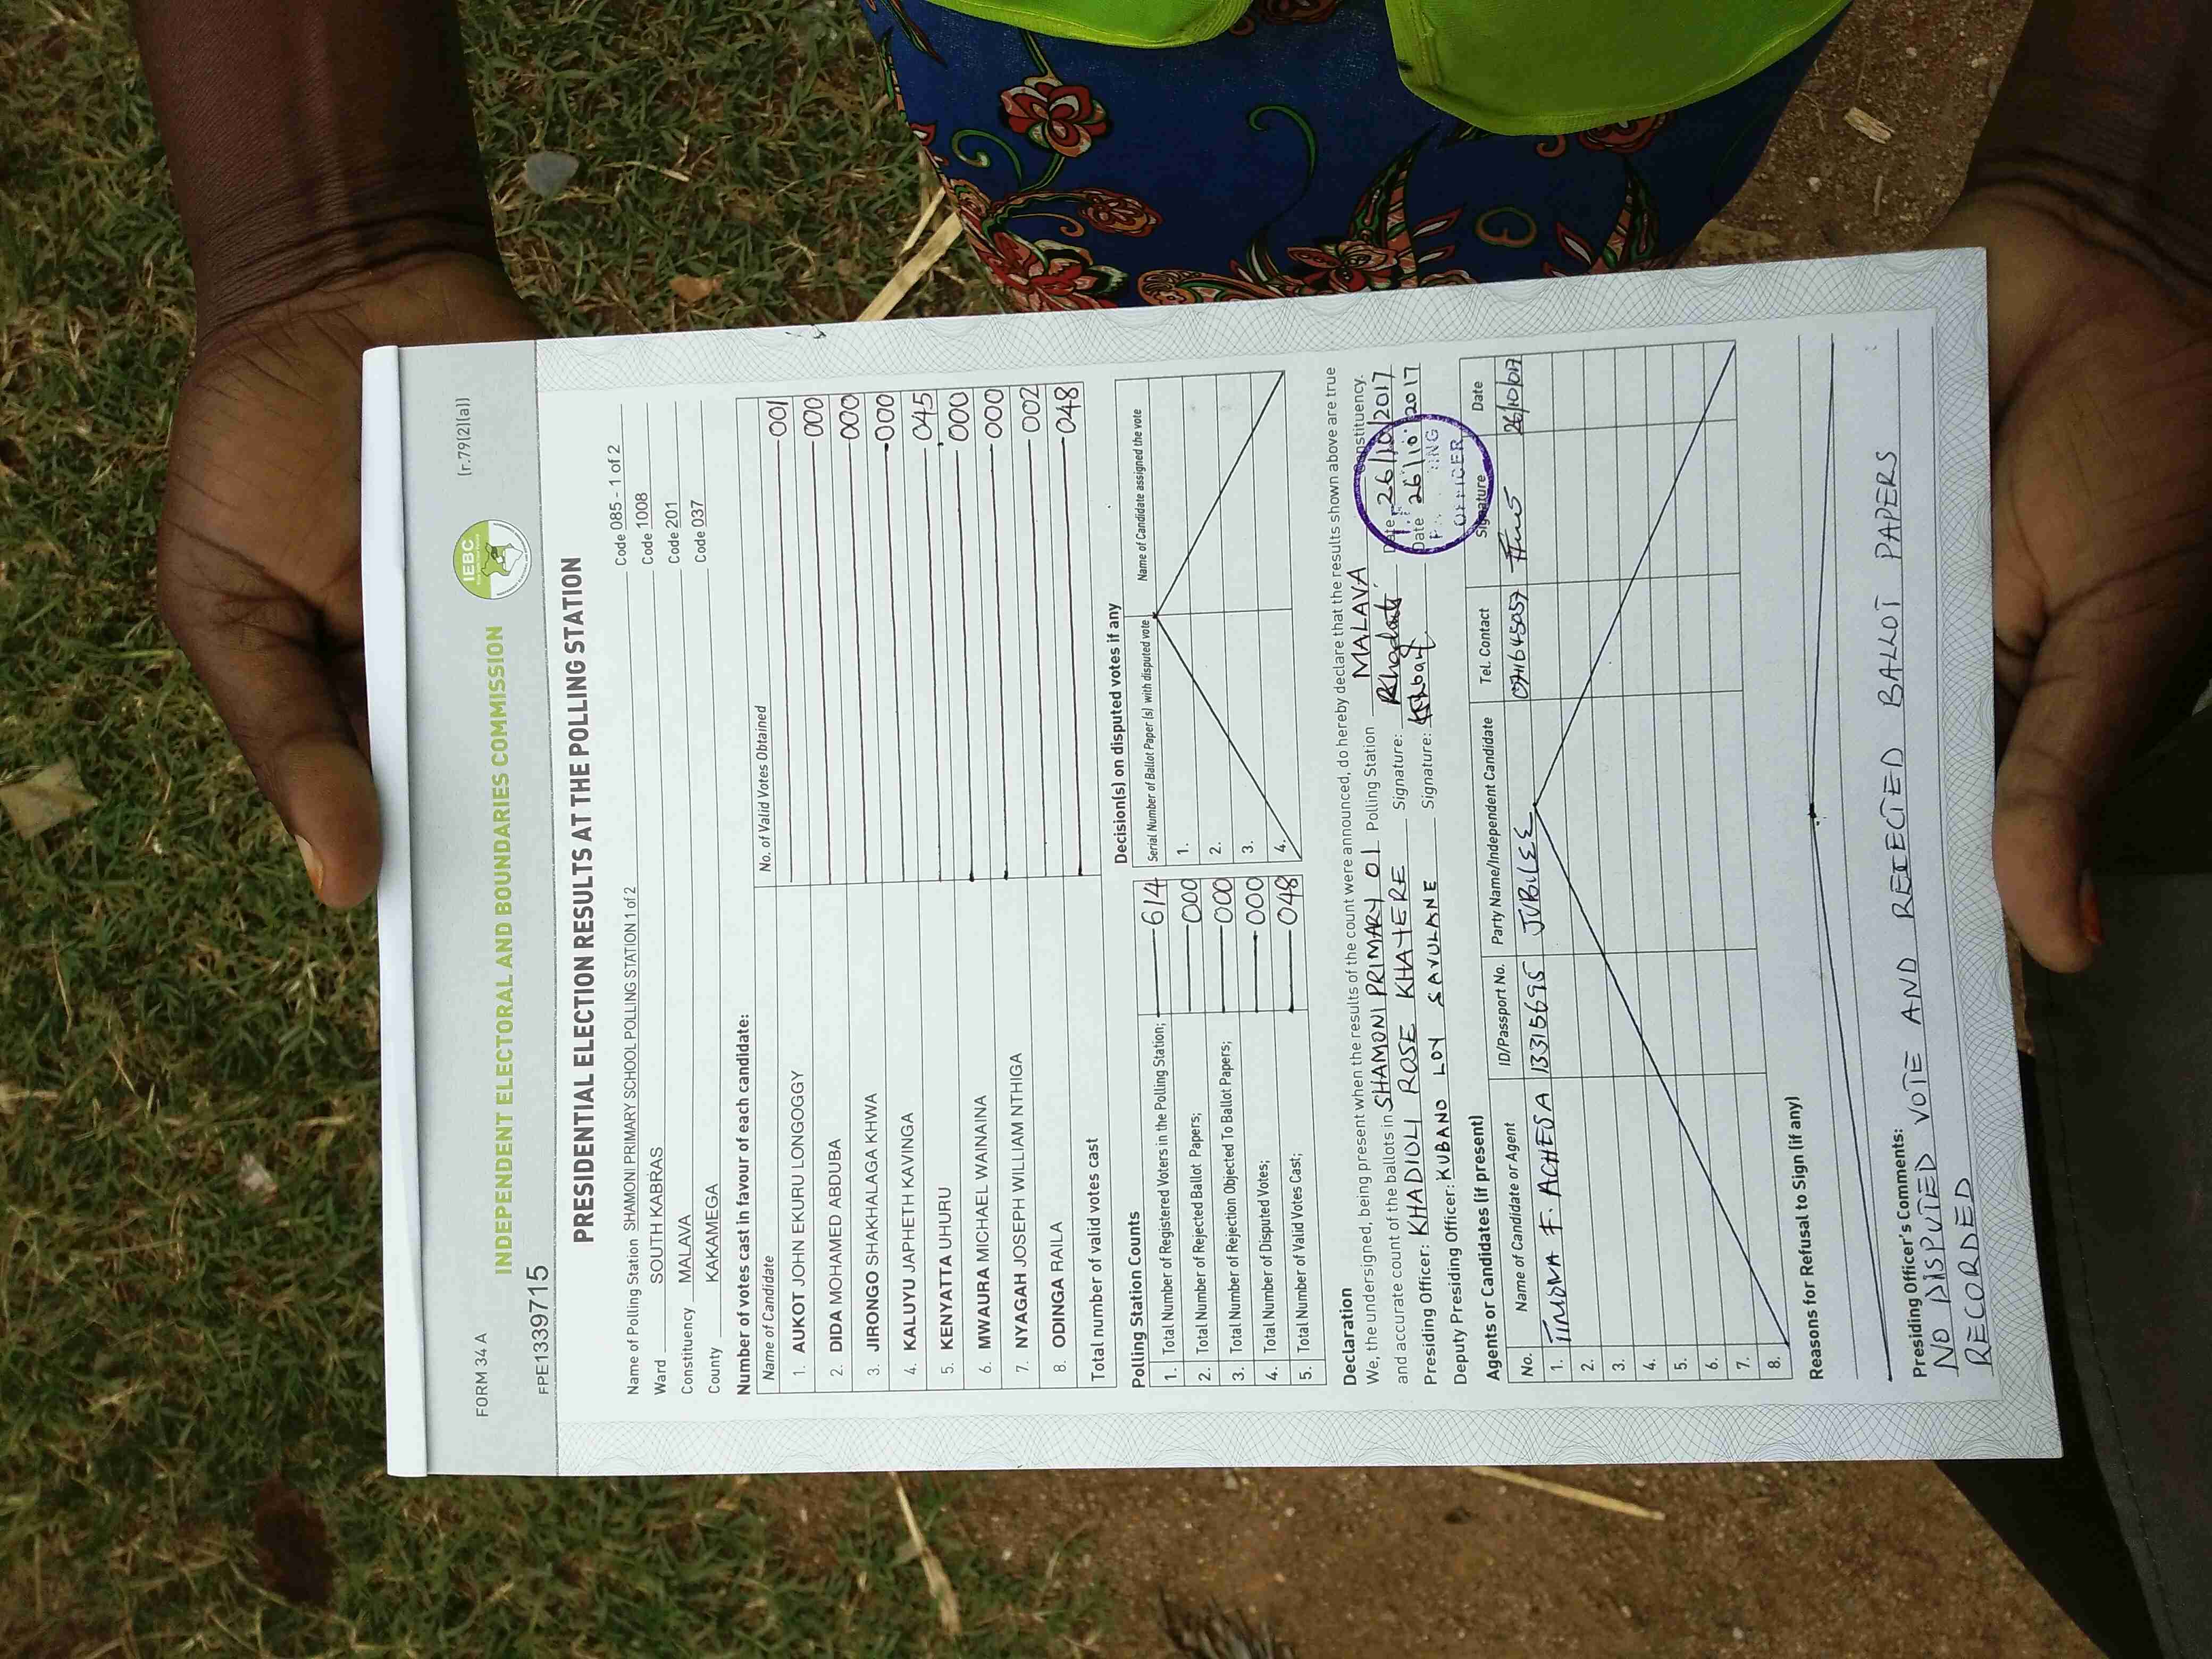 FORM 34 A
(r.79(2)(a))
IEBC
INDEPENDENT ELECTORAL AND BOUNDARIES COMMISSION
FPE1339715
PRESIDENTIAL ELECTION RESULTS AT THE POLLING STATION
Name of Polling Station SHAMONI PRIMARY SCHOOL POLLING STATION 1 of 2 Code 085 - 1 of 2
Ward SOUTH KABRAS Code 1008
Constituency MALAVA Code 201
County KAKAMEGA Code 037
Number of votes cast in favour of each candidate:
Name of Candidate No. of Valid Votes Obtained
1. AUKOT JOHN EKURU LONGOGGY 001
2. DIDA MOHAMED ABDUBA 000
3. JIRONGO SHAKHALAGA KHWA 000
4. KALUYU JAPHETH KAVINGA 000
5. KENYATTA UHURU 045
6. MWAURA MICHAEL WAINAINA 000
7. NYAGAH JOSEPH WILLIAM NTHIGA 000
8. ODINGA RAILA 002
Total number of valid votes cast 048
Polling Station Counts
1. Total Number of Registered Voters in the Polling Station; 614
2. Total Number of Rejected Ballot Papers; 000
3. Total Number of Rejection Objected To Ballot Papers; 000
4. Total Number of Disputed Votes; 000
5. Total Number of Valid Votes Cast; 048
Decision(s) on disputed votes if any
Serial Number of Ballot Paper (s) with disputed vote Name of Candidate assigned the vote
1.
2.
3.
4.
Declaration
We, the undersigned, being present when the results of the count were announced, do hereby declare that the results shown above are true
and accurate count of the ballots in SHAMONI PRIMARY 01 Polling Station MALAVA Constituency.
Presiding Officer: KHADIOLI ROSE KHAYERE Signature: Date 26/10/2017
Deputy Presiding Officer: KUBANO LOY SAVULANE Signature: Date 26/10/2017
OFFICER
Agents or Candidates (if present)
No. Name of Candidate or Agent ID/Passport No. Party Name/Independent Candidate Tel. Contact Signature Date
1. TIMONA F. ACHESA 13315695 JUBILEE 0711645057 26/10/017
2.
3.
4.
5.
6.
7.
8.
Reasons for Refusal to Sign (if any)
Presiding Officer's Comments:
NO DISPUTED VOTE AND REJECTED BALLOT PAPERS
RECORDED